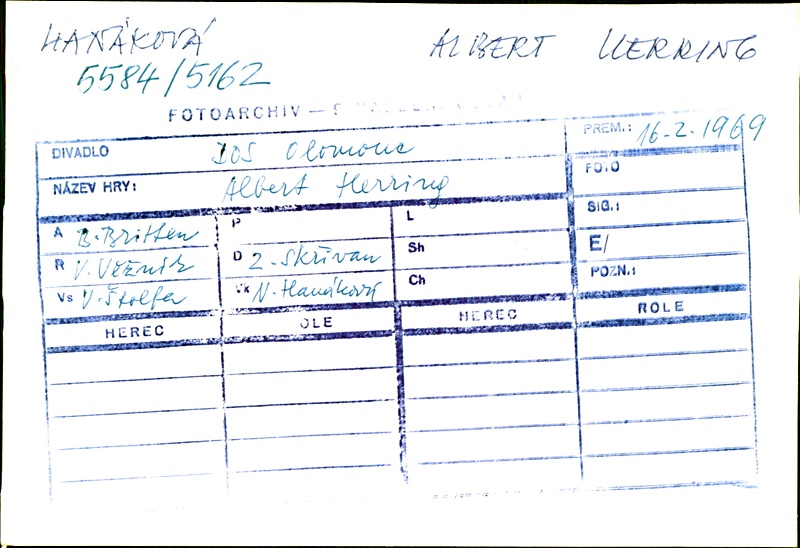 HANÁKOVÁ ALBERT HERRING
5584/5162
FOTOARCHIV —
DIVADLO DOS Olomouc PREM.: 16-2-1969
NÁZEV HRY: Albert Herring FOTO
A B. Britten P L SIG.:
R V. Věžník D Z. Skřivan Sh E/
Vs V. Štolfa Vk N. Hanáková Ch POZN.:
HEREC OLE HEREC ROLE